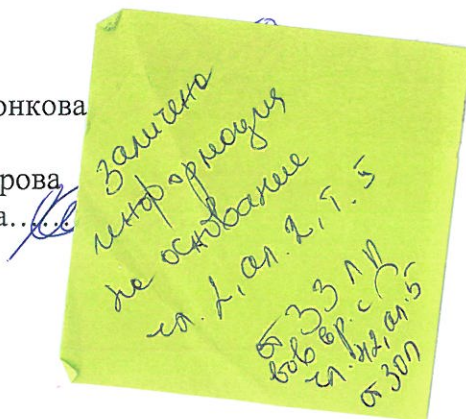 онкова
рова
а......
заличена
информация
на основание
чл. 2, ал. 2, т. 5
от ЗЗЛД
във вр. с
чл. 42, ал. 5
от ЗОП